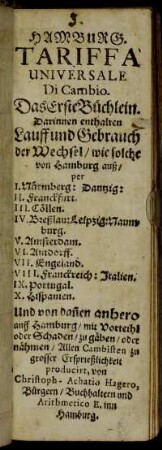 I.
HAMBURG.
TARIFFA
UNIVERSALE
Di Cambio.
Das Erste Büchlein.
Darinnen enthalten
Lauff und Gebrauch
der Wechsel / wie solche
von Hamburg auß /
per
I. Nürnberg: Dantzig:
II. Franckfurt.
III. Cöllen.
IV. Breßlau: Leipzig: Naum
burg.
V. Amsterdam.
VI. Antorff.
VII. Engeland.
VIII. Franckreich: Italien.
IX. Portugal.
X. Hispanien.
Und von dañen anhero
auff Hamburg / mit Vortheil
oder Schaden / zu gäben / oder
nähmen / Allen Cambisten zu
grosser Ersprießlichkeit
producirt, von
Christoph-Achatio Hagero,
Bürgern / Buchhaltern und
Arithmetico E. inn
Hamburg.